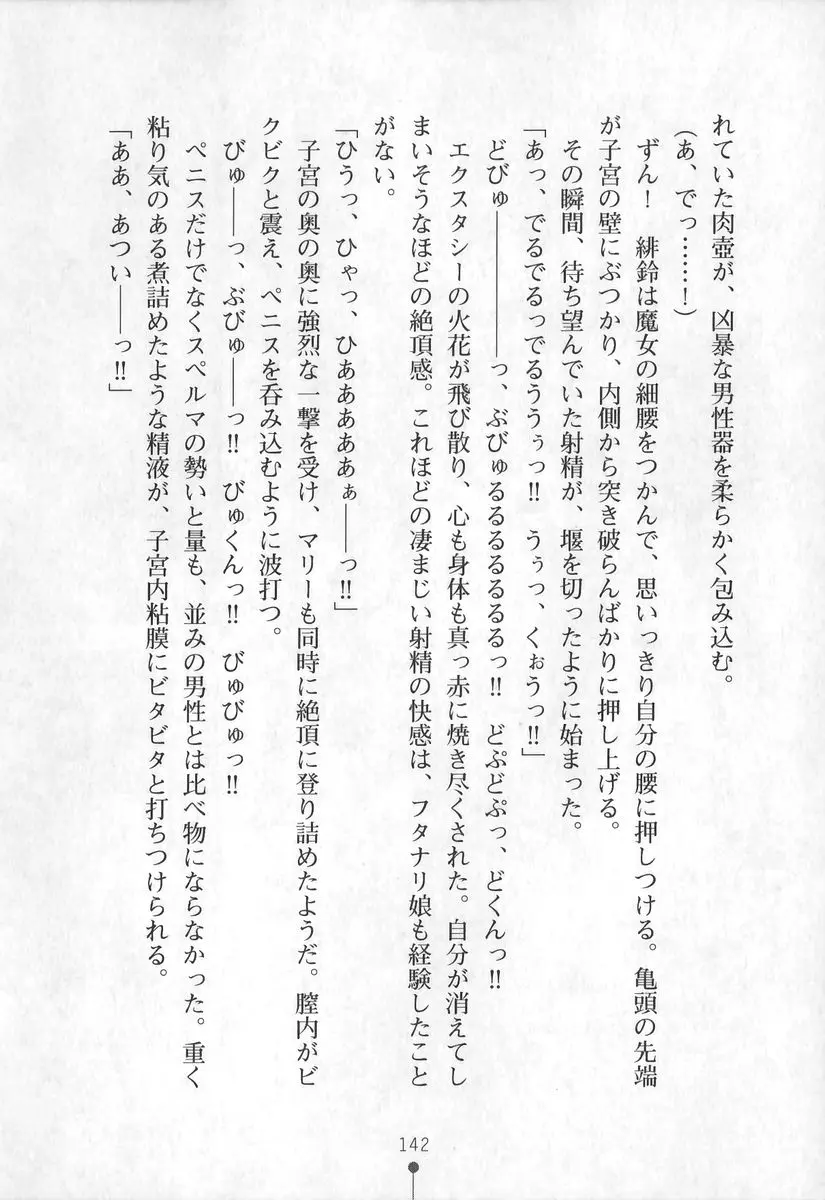 れていた肉壺が、凶暴な男性器を柔らかく包み込む。
(あ、でっ……！)
ずん！　緋鈴は魔女の細腰をつかんで、思いっきり自分の腰に押しつける。亀頭の先端
が子宮の壁にぶつかり、内側から突き破らんばかりに押し上げる。
その瞬間、待ち望んでいた射精が、堰を切ったように始まった。
「あっ、でるでるっでるううぅっ‼　うぅっ、くぉうっ‼」
どびゅ――――――っ、ぶびゅるるるるるるっ‼　どぷどぷっ、どくんっ‼
エクスタシーの火花が飛び散り、心も身体も真っ赤に焼き尽くされた。自分が消えてし
まいそうなほどの絶頂感。これほどの凄まじい射精の快感は、フタナリ娘も経験したこと
がない。
「ひうっ、ひゃっ、ひあああああぁ――っ‼」
子宮の奥の奥に強烈な一撃を受け、マリーも同時に絶頂に登り詰めたようだ。膣内がビ
クビクと震え、ペニスを呑み込むように波打つ。
びゅ――っ、ぶびゅ――っ‼　びゅくんっ‼　びゅびゅっ‼
ペニスだけでなくスペルマの勢いと量も、並みの男性とは比べ物にならなかった。重く
粘り気のある煮詰めたような精液が、子宮内粘膜にビタビタと打ちつけられる。
「ああ、あつい――っ‼」
142